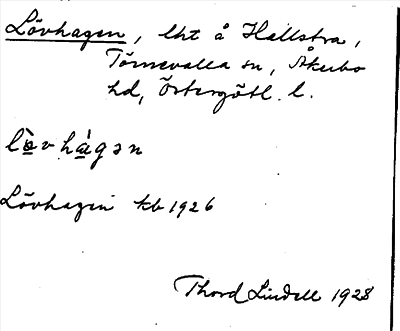 Lövhagen, lht å Hallstra,
Törnevalla sn, Åkerbo
hd, Östergötl. l.
lȍvhàgən
Lövhagen kb 1926
Thord Lindell 1928